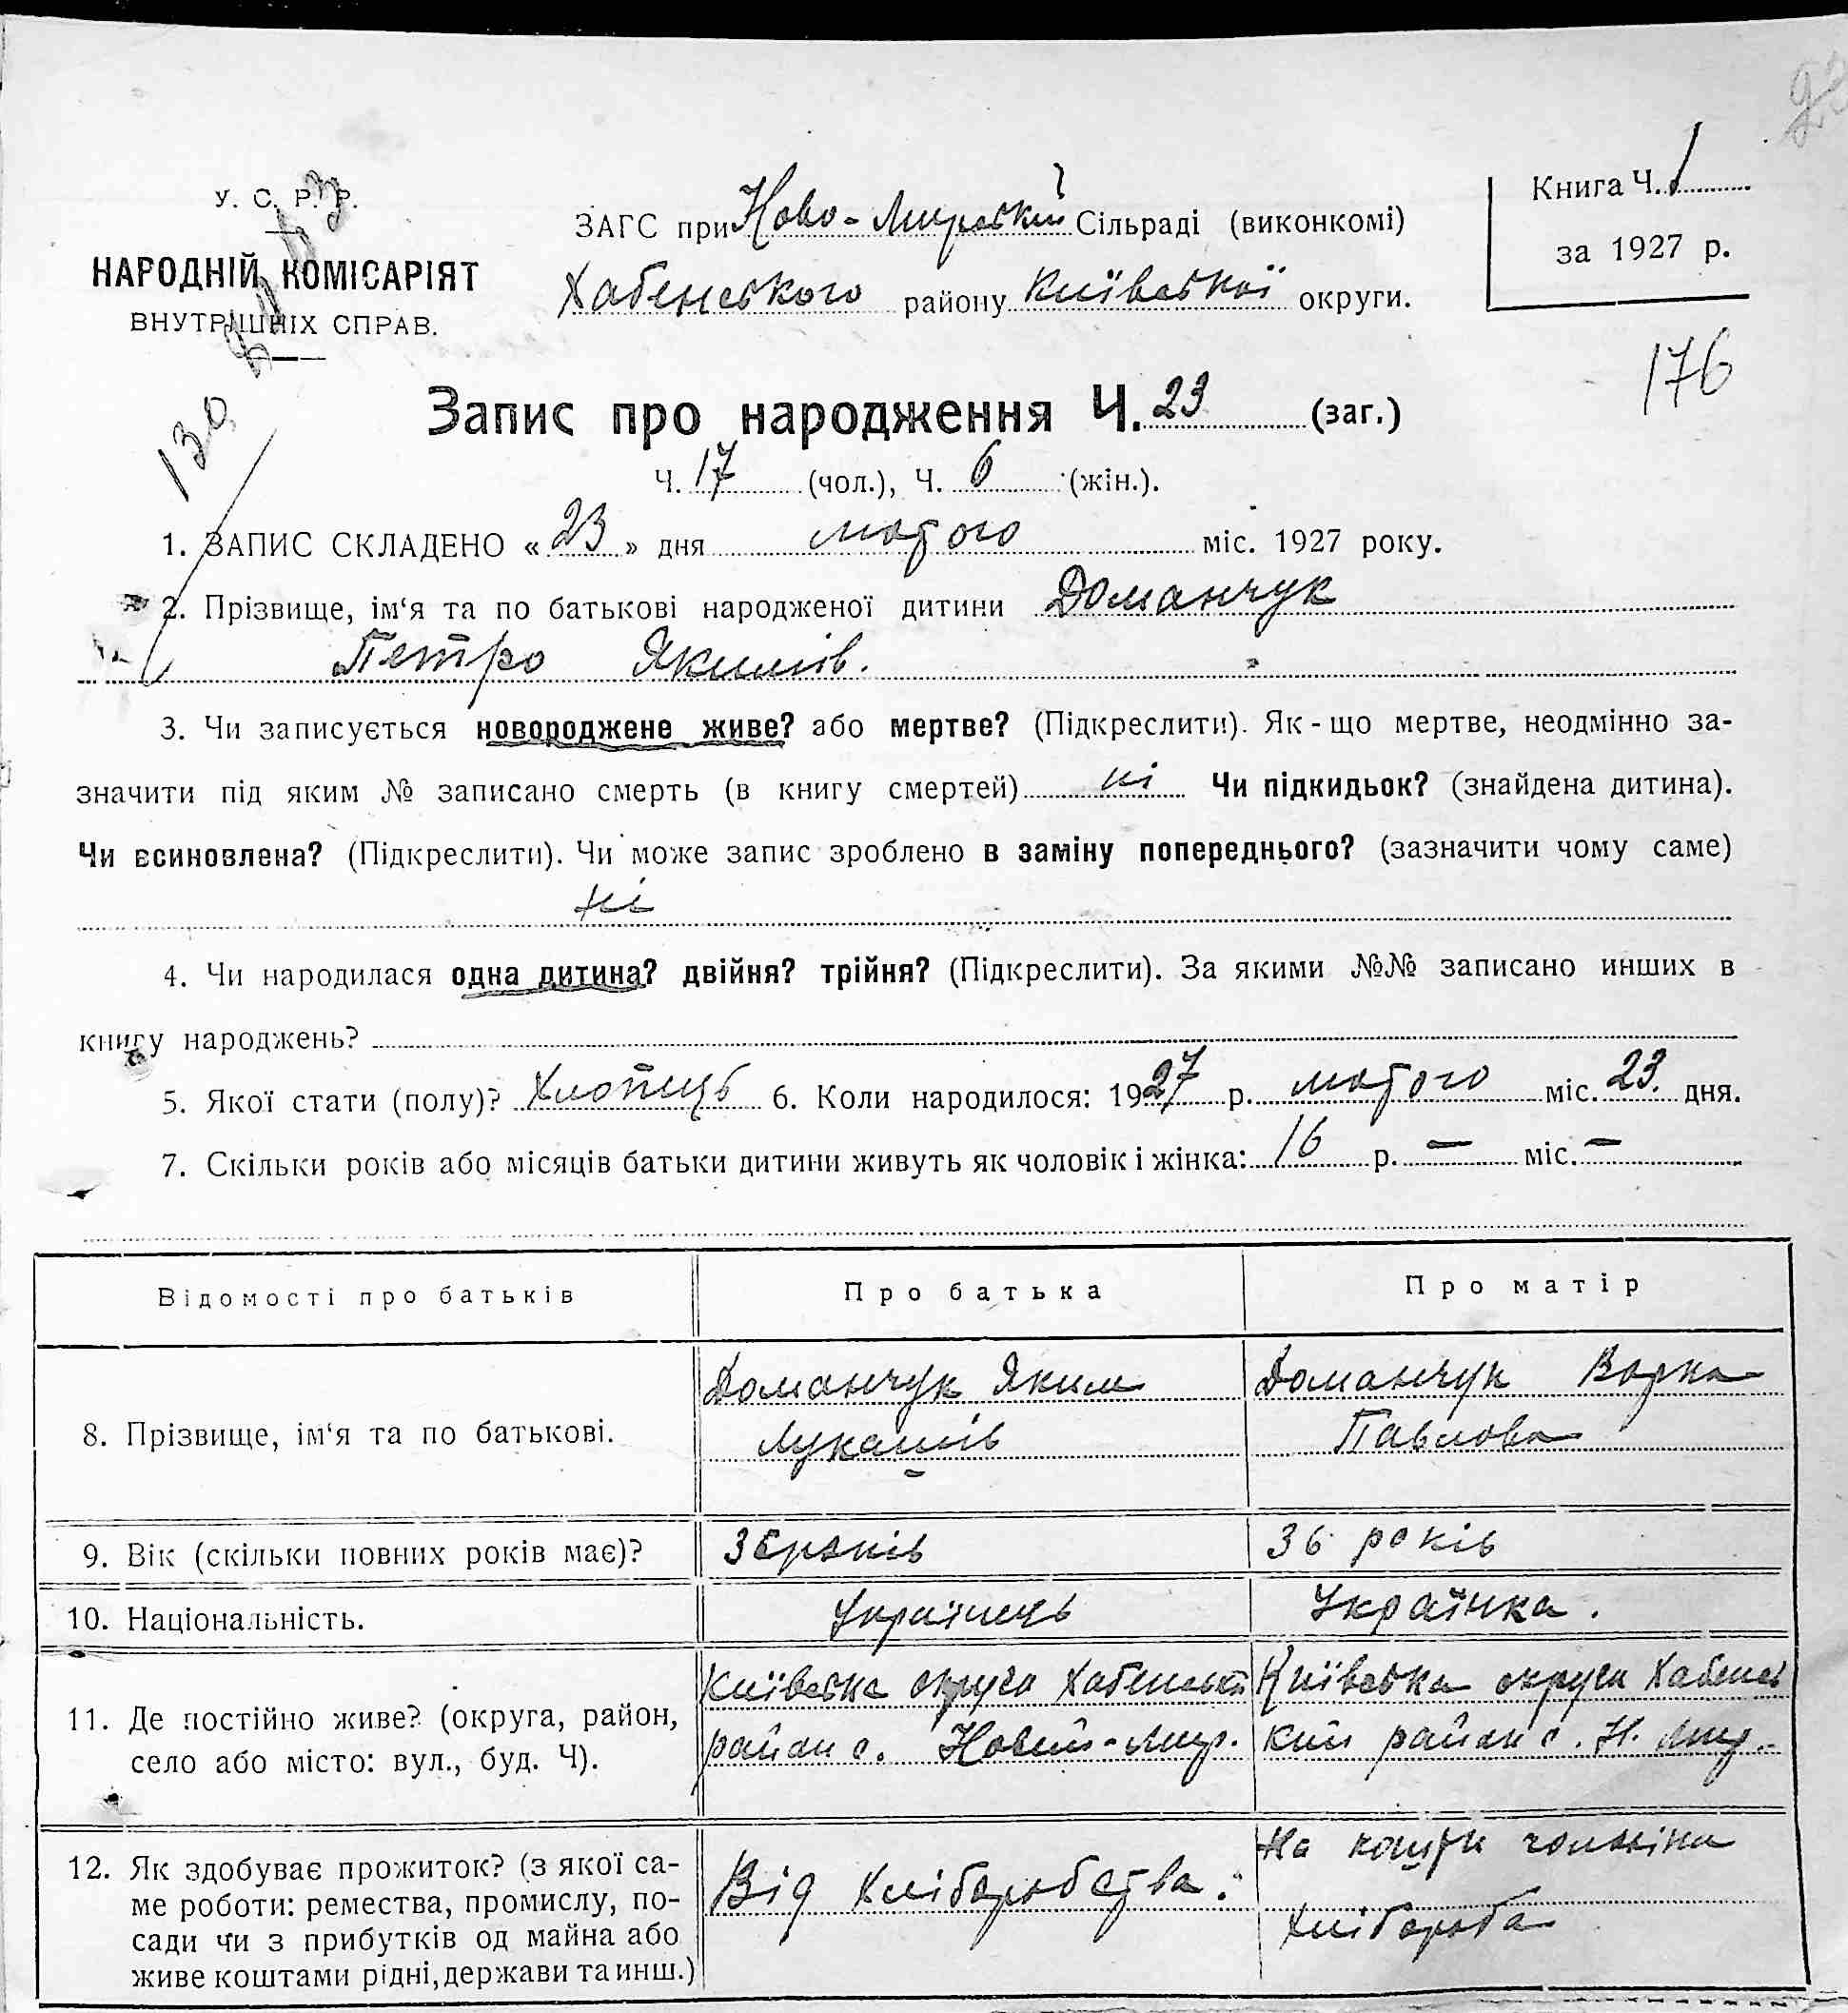 У. С. Р. Р.
НАРОДНІЙ КОМІСАРІЯТ
ВНУТРІШНІХ СПРАВ.
ЗАГС при Ново-Мирській Сільраді (виконкомі)
Хабенського району Київської округи.
Книга Ч. 1
за 1927 р.
176
130
Запис про народження Ч. 23 (заг.)
Ч. 17 (чол.), Ч. 6 (жін.).
1. ЗАПИС СКЛАДЕНО «23» дня лютого міс. 1927 року.
2. Прізвище, ім‘я та по батькові народженої дитини Доманчук
Петро Якимів.
3. Чи записується новороджене живе? або мертве? (Підкреслити). Як-що мертве, неодмінно за-
значити під яким № записано смерть (в книгу смертей) ні Чи підкидьок? (знайдена дитина).
Чи всиновлена? (Підкреслити). Чи може запис зроблено в заміну попереднього? (зазначити чому саме)
ні
4. Чи народилася одна дитина? двійня? трійня? (Підкреслити). За якими №№ записано инших в
книгу народжень?
5. Якої стати (полу)? Хлопець 6. Коли народилося: 1927 р. лютого міс. 23 дня.
7. Скільки років або місяців батьки дитини живуть як чоловік і жінка: 16 р. — міс. —
Відомості про батьків Про батька Про матір
8. Прізвище, ім‘я та по батькові.
Доманчук Яким
Лукашів
Доманчук Варка
Павлова
9. Вік (скільки повних років має)? 36 років 36 років
10. Національність. Українець Українка.
11. Де постійно живе? (округа, район,
село або місто: вул., буд. Ч).
Київська округа Хабенський
район с. Новий-Мир.
Київська округа Хабенсь
кий район с. Н. Мир.
12. Як здобуває прожиток? (з якої са-
ме роботи: ремества, промислу, по-
сади чи з прибутків од майна або
живе коштами рідні, держави та инш.)
Від хліборобства.
На кошти чоловіка
хлібороба